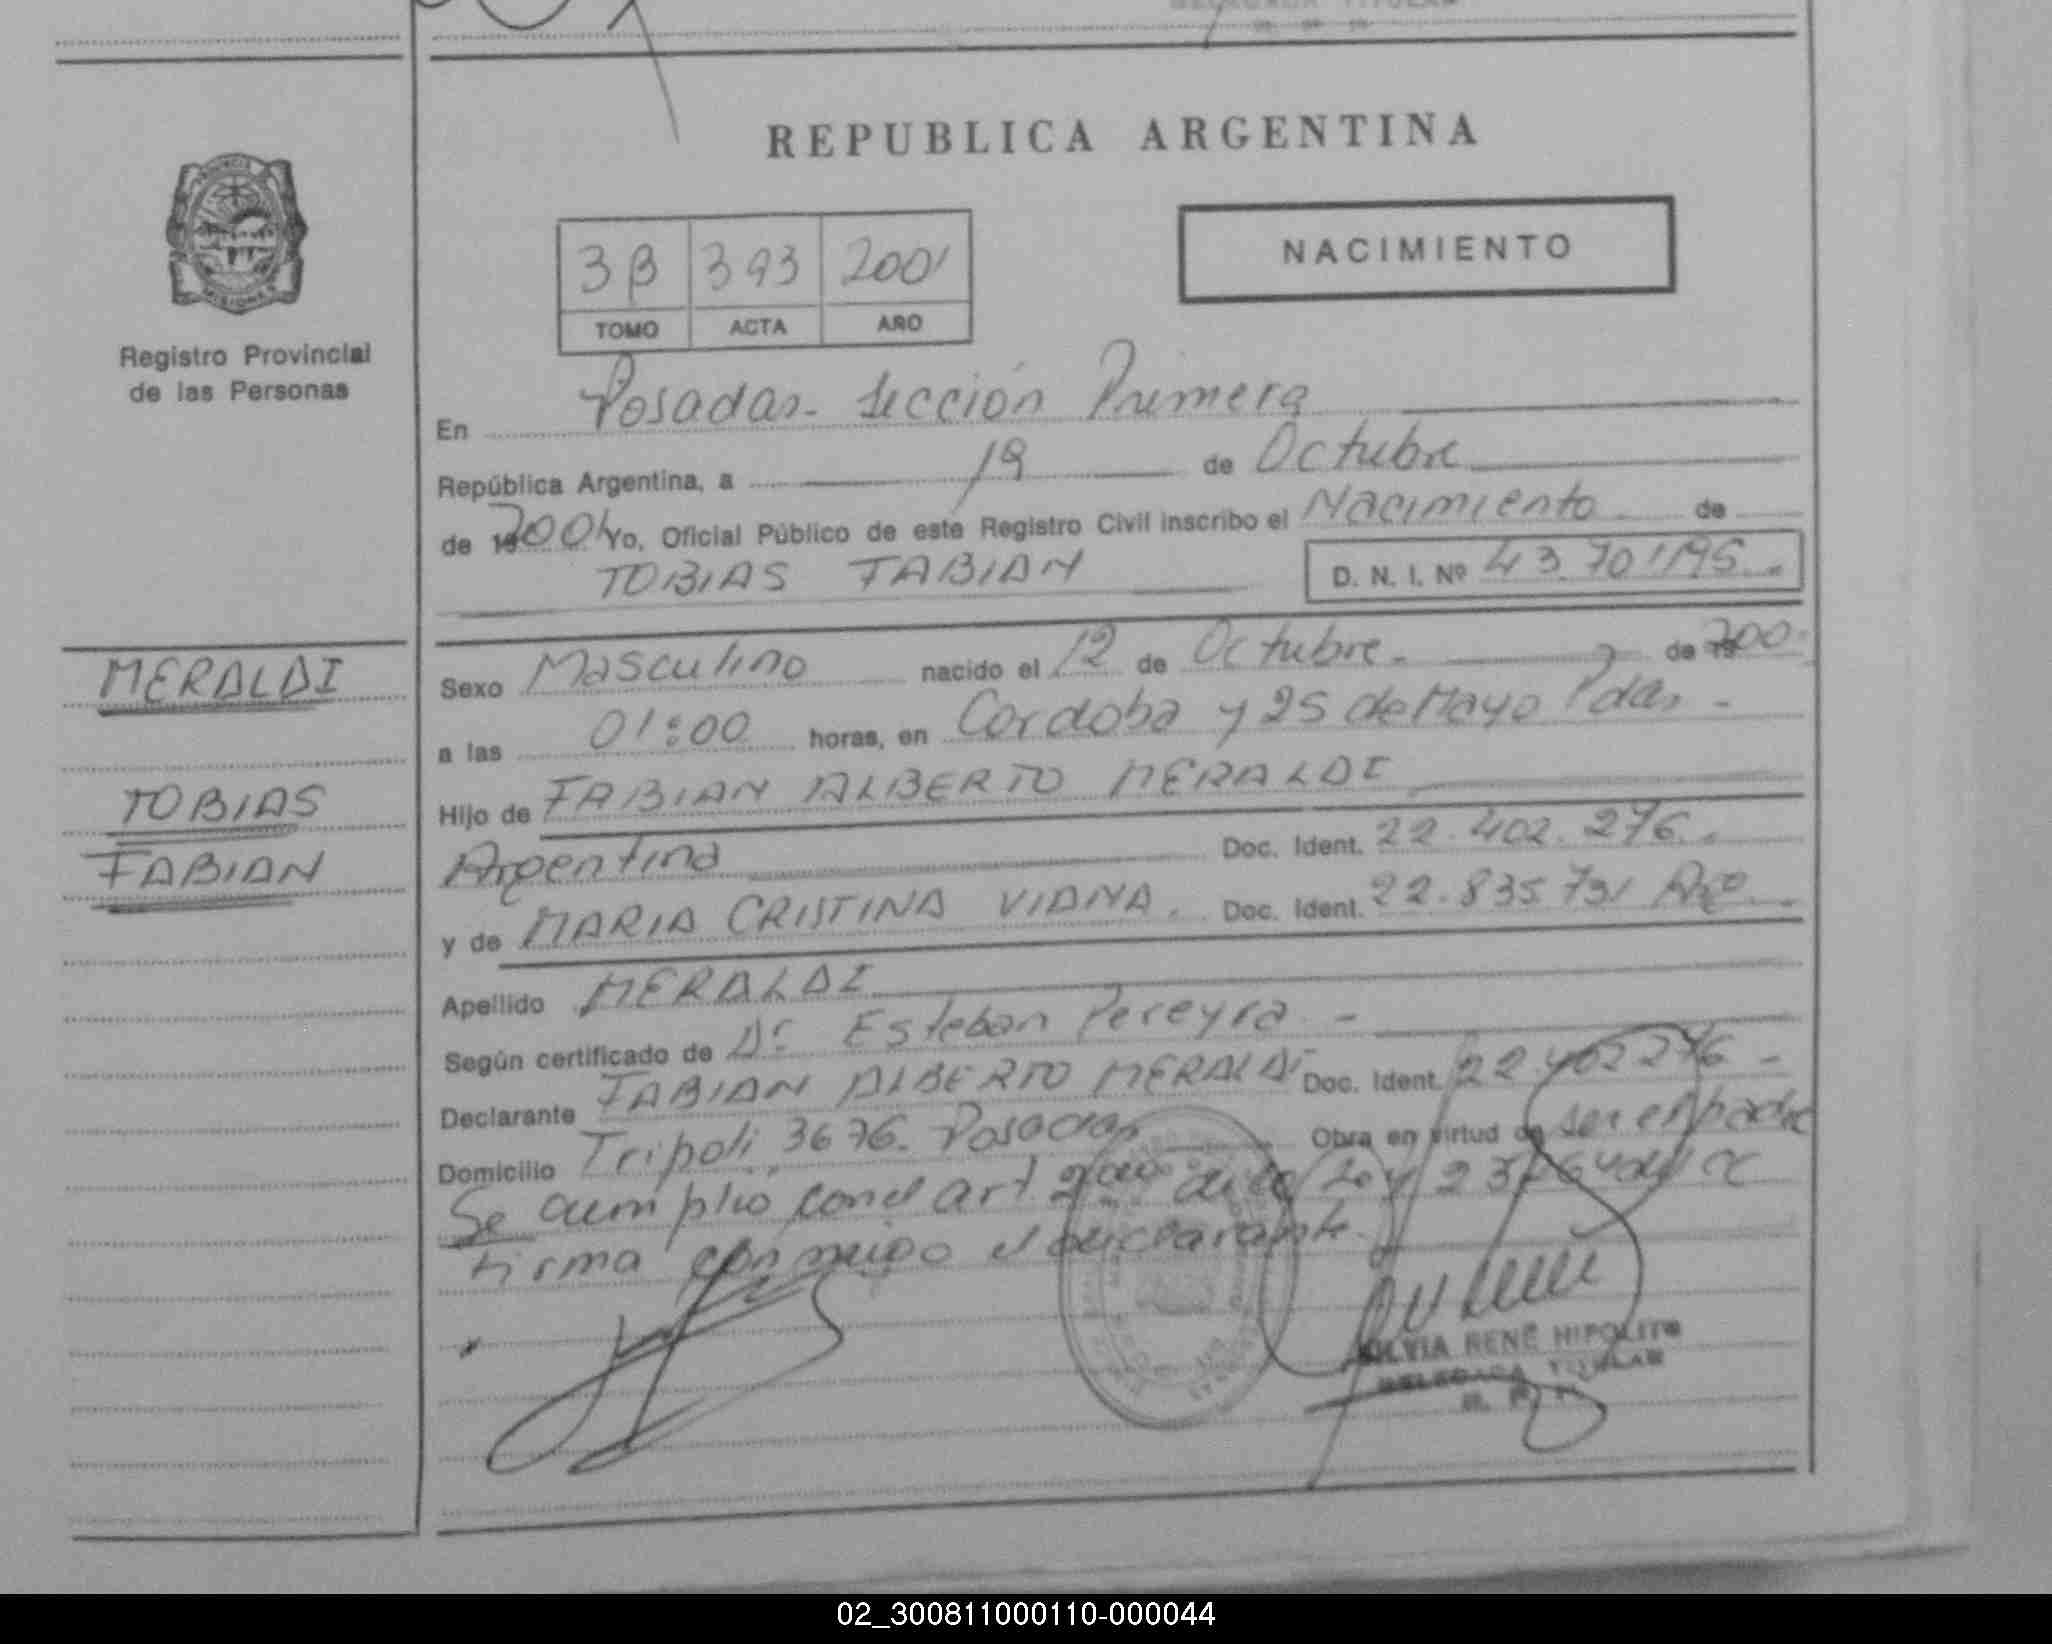 REPUBLICA ARGENTINA
NACIMIENTO
3B 393 2001
TOMO ACTA AÑO
Registro Provincial
de las Personas
En Posadas - Sección Primera
República Argentina, a 19 de Octubre
de 2001 Yo, Oficial Público de este Registro Civil inscribo el Nacimiento de
TOBIAS FABIAN D. N. I. Nº 43.701195.-
MERALDI
TOBIAS
FABIAN
Sexo Masculino nacido el 12 de Octubre - de 19 200
a las 01:00 horas, en Cordoba y 25 de Mayo Pdas -
Hijo de FABIAN ALBERTO MERALDI
Argentina Doc. Ident. 22.402.276.-
y de MARIA CRISTINA VIANA. Doc. Ident. 22.835.731
Apellido MERALDI
Según certificado de Dr Esteban Pereyra -
Declarante FABIAN ALBERTO MERALDI Doc. Ident. 22.402276 -
Domicilio Tripoli 3676. Posadas Obra en virtud de ser el padre
Se cumplio con el art
firma conmigo el declarante.
SILVIA RENÉ HIPOLITO
DELEGADA TITULAR
R. P. P.
02_300811000110-000044